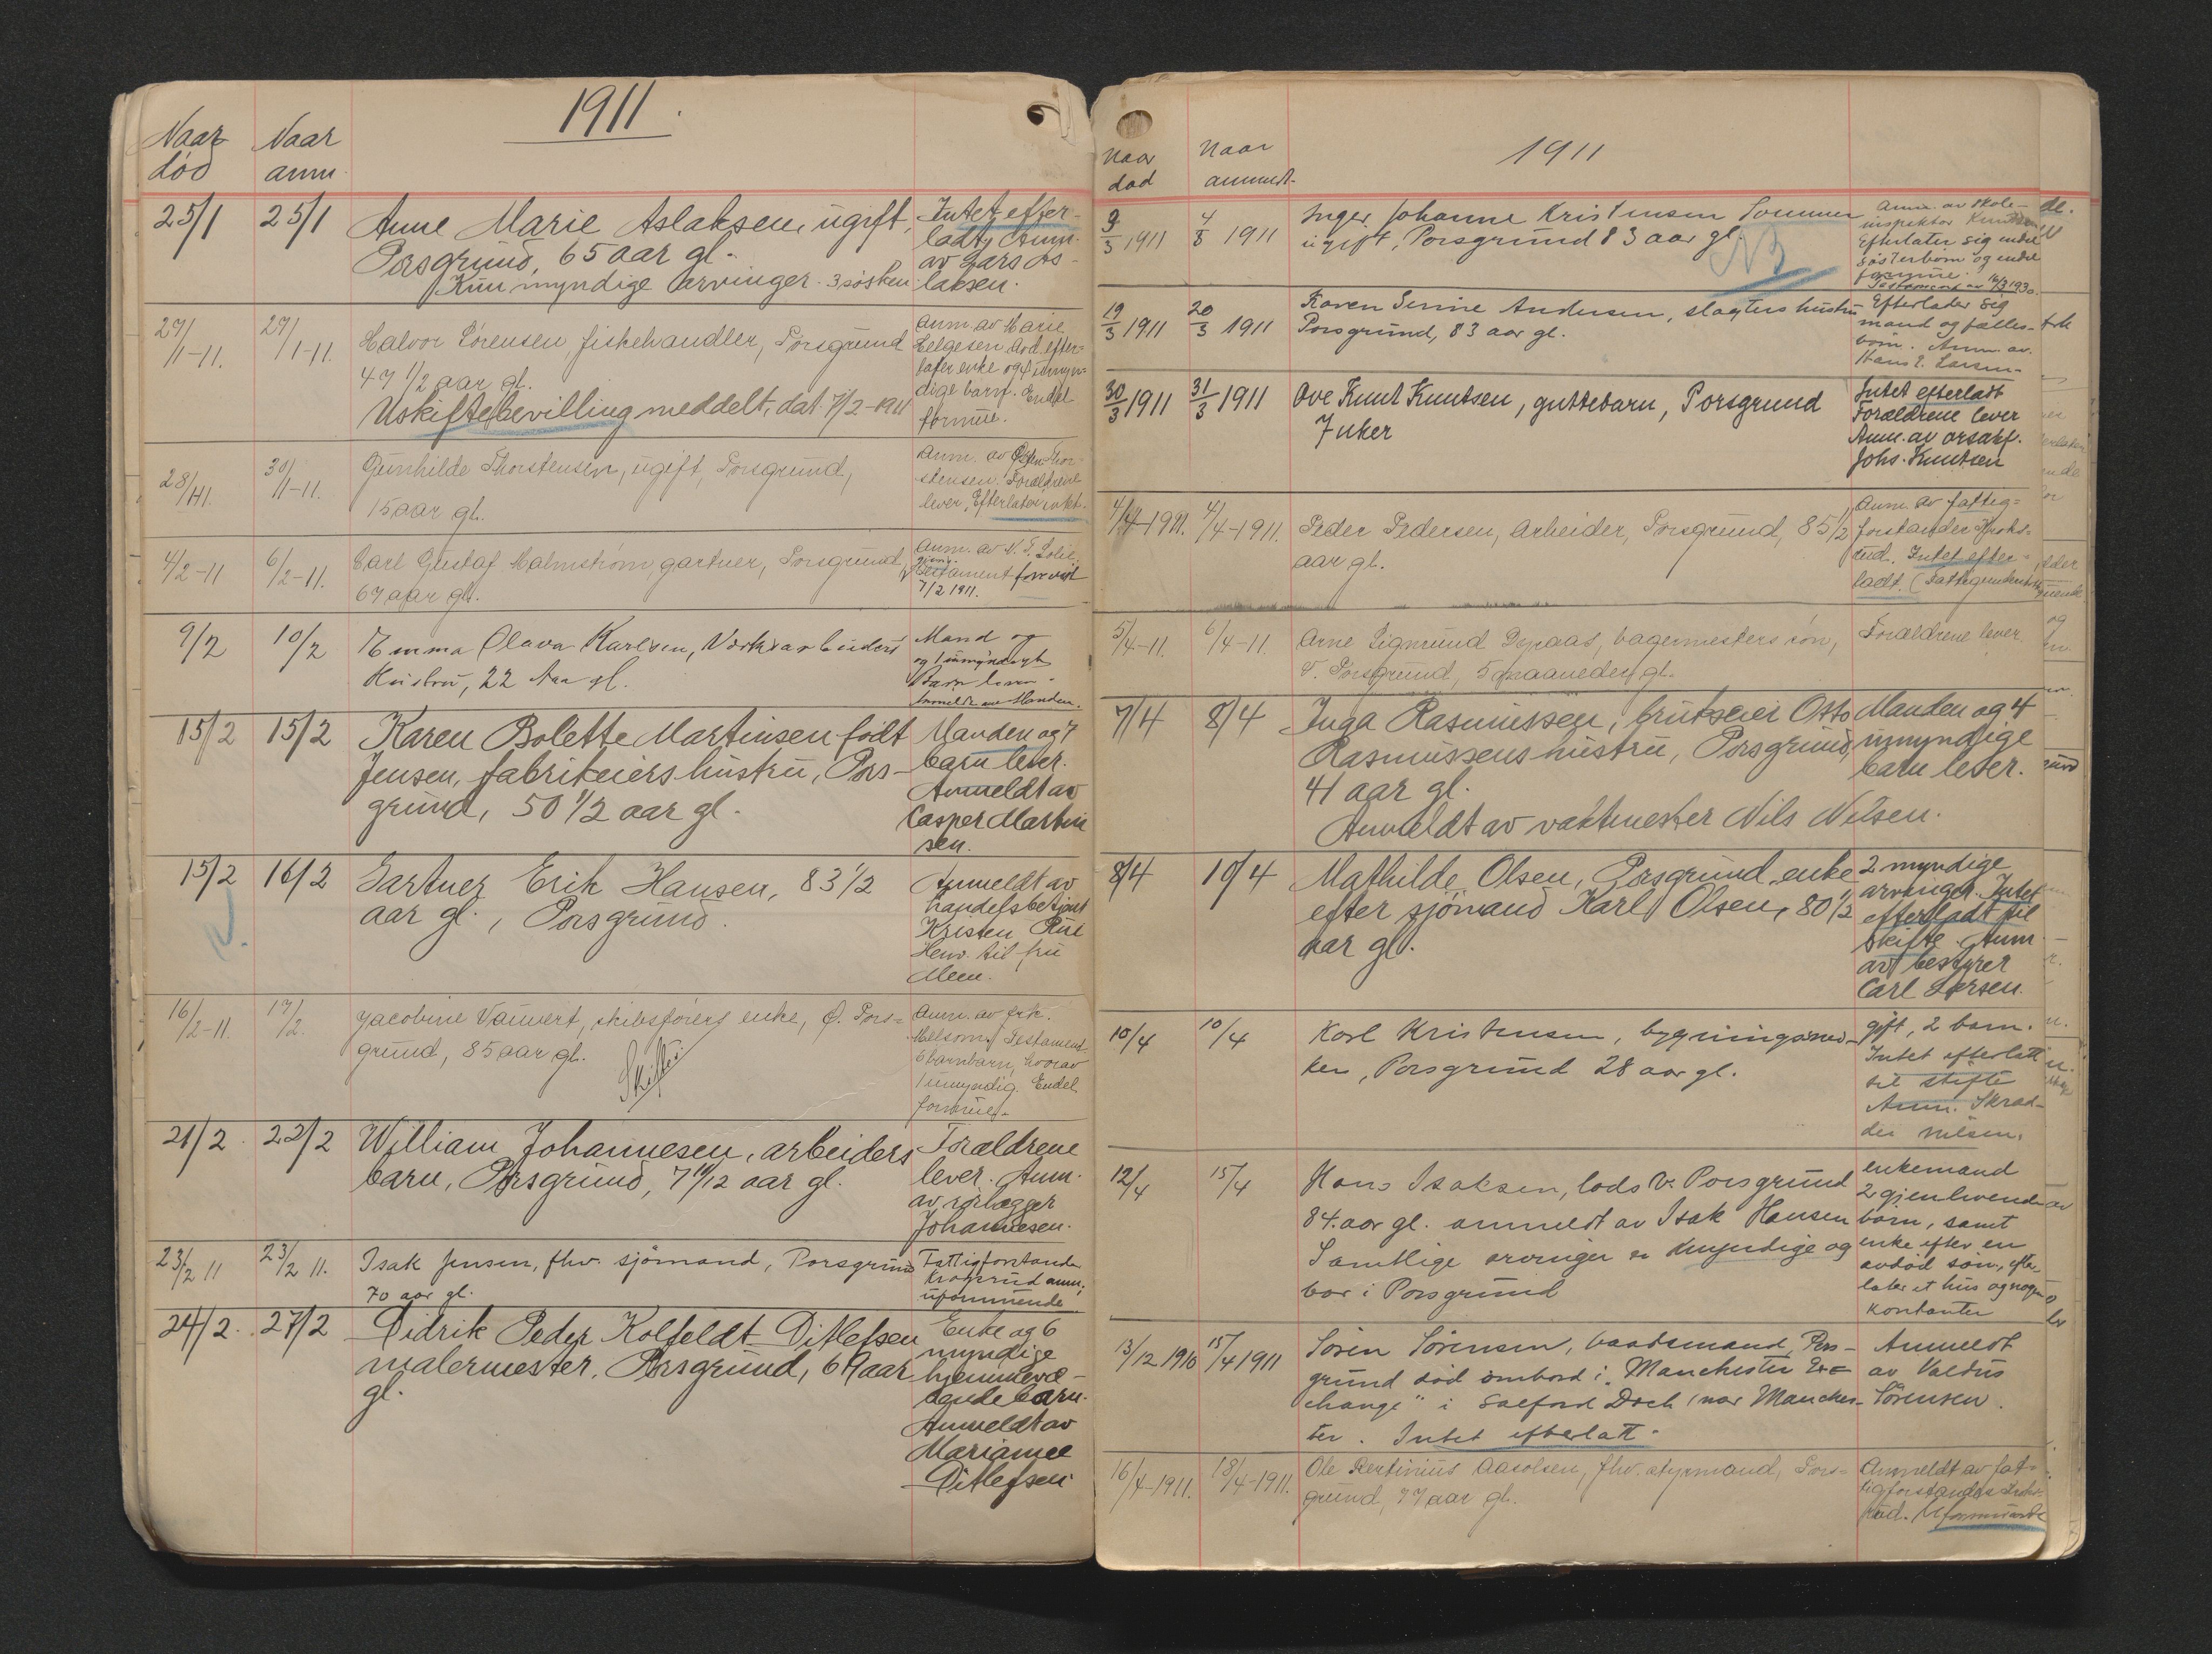 1911.
Naar død
Naar anm.
25/1
25/1
Anne Marie Aslaksen, ugift,
Porsgrund, 65 aar gl.
Kun myndige arvinger. 3 søsken
Intet efter-
ladt, Anm.
av Lars As-
laksen.
27/1-11.
27/1-11.
Halvor Sørensen, fiskehandler, Porsgrund
47 1/2 aar gl.
Uskiftebevilling meddelt, dat. 7/2-1911
Anm. av Marie
Helgesen. Avd. efter-
later enke og umyn-
dige barn. Endel
formue.
28/1-11.
30/1-11.
Gunhilde Thorstensen, ugift, Porsgrund,
15 aar gl.
Anm. av Thor-
stensen. Forældrene
lever, Efterlater intet.
4/2-11
6/2-11.
Carl Gustaf Malmstrøm, gartner, Porsgrund,
67 aar gl.
Anm. av N. T. Solli,
Testament forevist
7/2 1911.
9/2
10/2
Emma Olava Karlsen, Verksarbeiders
Hustru, 22 Aar gl.
Mand og
og 1 umyndigt
Barn lever.
Anmeldt av Manden.
15/2
15/2
Karen Bolette Martinsen født
Jensen, fabrikeiers hustru, Pors-
grund, 50 1/2 aar gl.
Manden og 7
barn lever.
Anmeldt av
Casper Martin
sen.
15/2
16/2
Gartner Erik Hansen, 83 1/2
aar gl., Porsgrund.
Anmeldt av
handelsbetjent
Kristen
Henv. til fru
Meen.
16/2-11.
17/2.
Jacobine Vauvert, skibsførers enke, Ø. Pors-
grund, 85 aar gl.
Skifte
Anm. av frk.
Melsom. Testament
6 barnbarn, hvorav
1 umyndig. Endel
formue.
21/2.
22/2
William Johannesen, arbeiders
barn, Porsgrund, 7 11/12 aar gl.
Forældrene
lever. Anm.
av rørlægger
Johannesen.
23/2 11
23/2 11.
Isak Jensen, fhv. sjömand, Porsgrund
70 aar gl.
Fattigforstander
Krogsrud anm.
uformuende
24/2.
27/2
Didrik Peder Kolfeldt Ditlefsen
malermester, Porsgrund, 69 aar
gl.
Enke og 6
myndige
hjemmevæ-
rende barn.
Anmeldt av
Marianne
Ditlefsen
1911
Naar død
Naar anmeldt.
3/3 1911
4/3 1911
Inger Johanne Kristensen Sommer
ugift, Porsgrund 83 aar gl.
NB
Anm. av skole-
inspektør Knudsen
Efterlater sig endel
søsterbørn og endel
formue.
Testament av 14/3 1930.
19/3 1911
20/3 1911
Karen Serine Andersen, slagters hustru
Porsgrund, 83 aar gl.
Efterlader sig
mand og fælles-
børn. Anm. av.
Hans E. Larsen.
30/3 1911
31/3 1911
Ove Knut Knutsen, guttebarn, Porsgrund
7 uker
Intet efterladt
Forældrene lever
Anm. av orsakf.
Johs. Knutsen
4/4-1911.
4/4-1911.
Peder Pedersen, arbeider, Porsgrund, 85 1/2
aar gl.
Anm. av fattig-
forstander Krohs-
rud. Intet efter-
ladt.
5/4-11.
6/4-11.
Arne Sigmund Depaas, bagermesters søn,
V. Porsgrund, 5 maaneder gl.
Forældrene lever
7/4
8/4
Inga Rasmussen, brukseier Otto
Rasmussens hustru, Porsgrund,
41 aar gl.
Anmeldt av vaktmester Nils Nilsen.
Manden og 4
umyndige
barn lever.
8/4
10/4
Mathilde Olsen, Porsgrund, enke
efter sjömand Karl Olsen, 80 1/2
aar gl.
2 myndige
arvinger. Intet
efterladt til
skifte. Anm.
av bestyrer
Carl Larsen.
10/4
10/4
Karl Kristensen, bygningssned-
ker, Porsgrund 28 aar gl.
gift, 2 barn.
Intet efterlatt
til skifte
Anm. Skræd-
der Nilsen.
12/4
15/4
Hans Isaksen, lods V. Porsgrund
84. aar gl. anmeldt av Isak Hansen
Samtlige arvinger er myndige og
bor i Porsgrund
enkemand
2 gjenlevende
børn, samt
enke efter en
avdød søn, efter-
later et hus og nogen
kontanter
13/12 1910
15/4 1911
Søren Sørensen, baadsmand, Pors-
grund død ombord i "Manchester Ex-
change" i Salford Dock (nær Manches-
ter. Intet efterlatt.
Anmeldt
av Valdus
Sørensen.
16/4-1911.
18/4-1911.
Ole Bertinius Aasolsen, fhv. styrmand, Pors-
grund, 77 aar gl.
Anmeldt av fat-
tigforstander Krohs-
rud. Uformuende